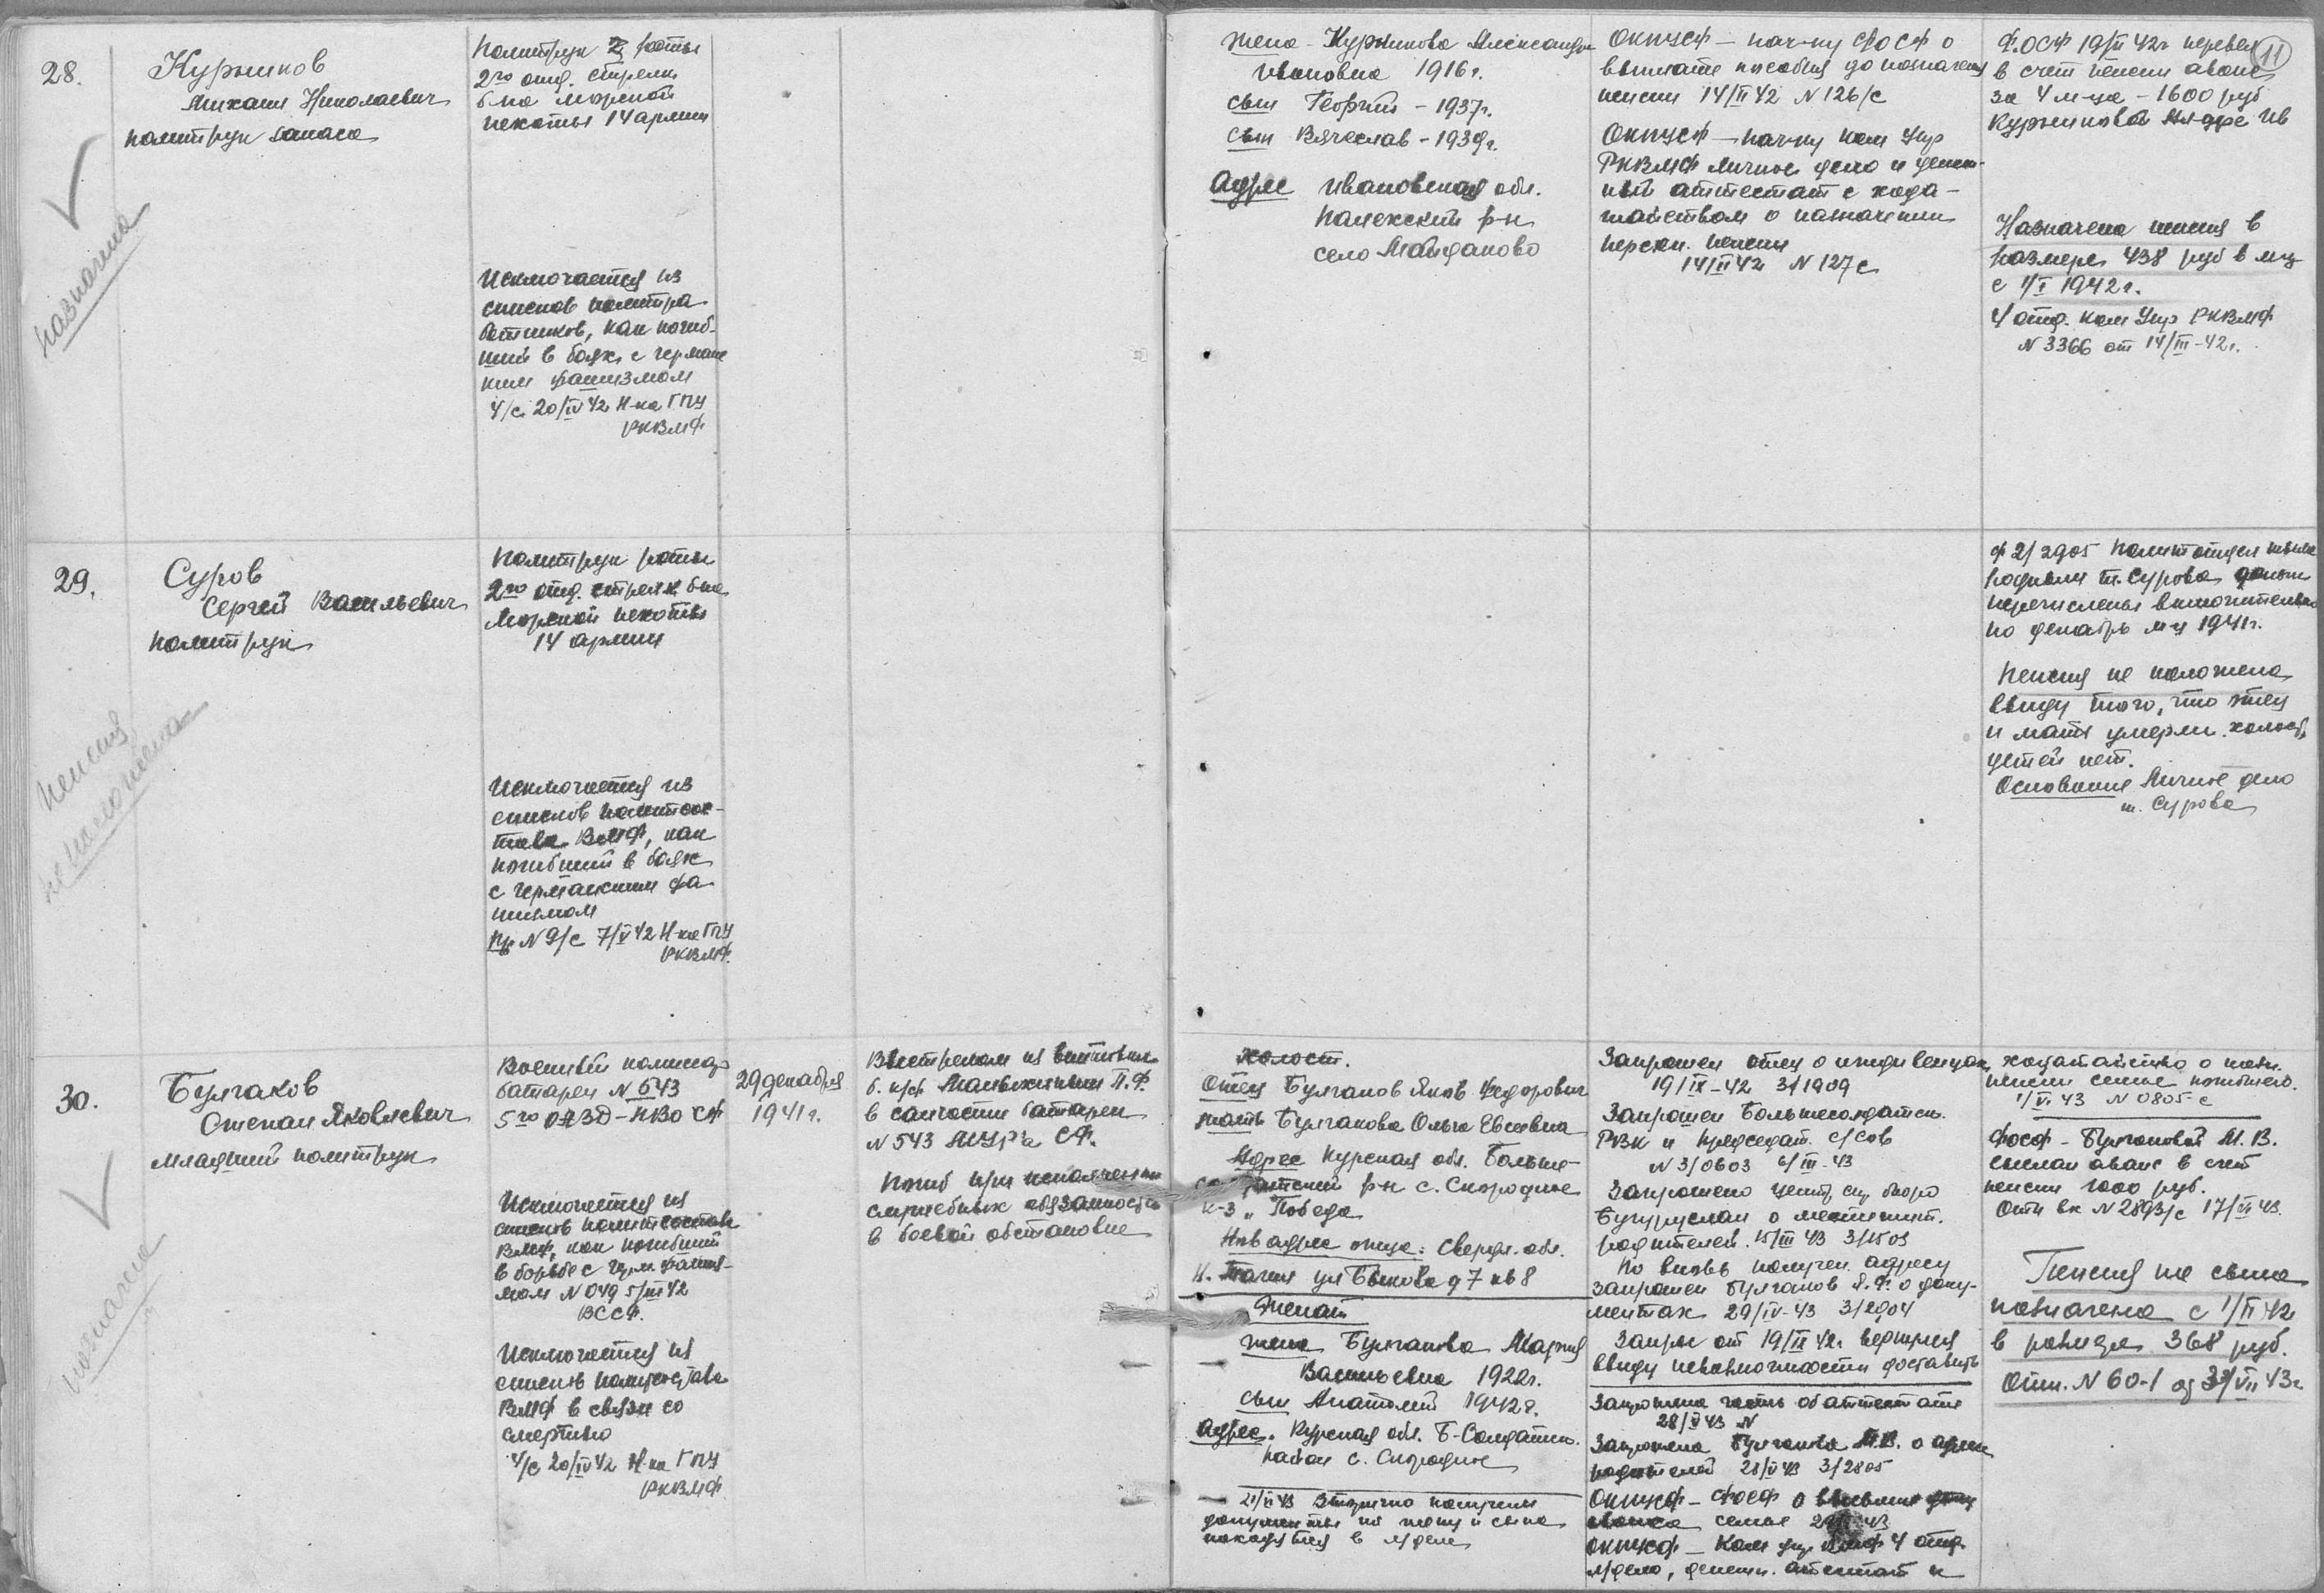 11
28.
Курников
Михаил Николаевич
политрук запаса
назначена
Политрук 2 роты
2го отд. стрелк.
б-на морской
пехоты 14 армии
Исключается из
списков политра
ботников, как погиб-
ший в боях с германс
ким фашизмом
4/с 20/IV 42 Н-ка ГПУ
РКВМФ
Жена - Курникова Александра
Ивановна 1916г.
сын Георгий - 1937г.
сын Вячеслав - 1939г.
Адрес Ивановская обл.
Палехский р-н
село Майданово
ОКПУСФ - нач-ку ФОСФ о
выплате пособия до назначения
пенсии 14/II 42 N 126/с
ОКПУСФ - нач-ку Ком Упр
РКВМФ личное дело и денеж-
ный аттестат с хода-
тайством о назначении
персон. пенсии
14/II 42 N 127с
ФОСФ 19/II 42г перевел
в счет пенсии аванс
за 4 м-ца - 1600 руб
Курниковой Ив
Назначена пенсия в
размере 438 руб в м-ц
с 1/I 1942г.
4 отд. Ком Упр РКВМФ
N 3366 от 14/III-42г.
29.
Суров
Сергей Васильевич
политрук
пенсия
не положена
Политрук роты
2го отд. стрелк б-на
Морской пехоты
14 армии
Исключается из
списков политсос-
тава ВМФ, как
погибший в боях
с германским фа
шизмом
Пр N 9/с 7/V 42 Н-ка ГПУ
РКВМФ.
Политотдел
т. Сурова
перечислены включительно
по декабрь м-ц 1941г.
Пенсия не положена
ввиду того, что отец
и мать умерли. холост,
детей нет.
Основание Личное дело
т. Сурова
30.
Булгаков
Степан Яковлевич
младший политрук
назначена
Военный комиссар
батареи N 543
5го ОАЗД - НВО СФ
Исключается из
списков политсостава
ВМФ, как погибший
в борьбе с герм. фашиз-
мом N 049 5/III 42
ВССФ.
Исключается из
списков политсостава
ВМФ в связи со
смертью
4/с 20/IV 42 Н-ка ГПУ
РКВМФ
29 декабря
1941г.
Выстрелом из винтовки
б. к/ф П.Ф.
в санчасти батареи
N 543 СФ.
Погиб при исполнении
служебных обязанностей
в боевой обстановке
Холост.
Отец Булгаков Яков Федорович
мать Булгакова Ольга Евсеевна
Адрес Курская обл. Больше-
солдатский р-н с. Скородное
к-з "Победа
Нов адрес отца: Свердл. обл.
Н. Тагил ул Быкова д 7 кв 8
Женат
жена Булгакова Мария
Васильевна 1922г.
сын Анатолий 1942г.
Адрес. Курская обл. Б-Солдатск.
район с. Скородное
21/VI 43 Вторично получены
документы на жену и сына
находятся в л/деле
Запрошен отец о иждивенцах
19/IX-42 3/1909
Запрошен Большесолдатск.
РВК и председат. с/сов
N 3/0603 6/III-43
Запрошено центр. спр. бюро
Бугуруслан о местожит.
родителей. 15/III 43 3/1503
По вновь получен. адресу
запрошен Булгаков Я.Ф. о доку-
ментах 29/IV-43 3/2904
Запрос от 19/IX 42г вернулся
ввиду невозможности доставить
Запрошена часть об аттестате
28/V 43 N
Запрошена Булгакова М.В. о адресе
родителей 28/V 43 3/2805
ОКПУСФ - ФОСФ о высылке
аванса семье 43
ОКПУСФ - Ком упр 4 отд.
л/дело, денежн. аттестат и
ходатайство о назн.
пенсии семье погибшего.
1/VI 43 N 0805 с
ФОСФ - Булгаковой М.В.
выслан аванс в счет
пенсии 1000 руб.
Отн вх N 2893/с 17/VI 43.
Пенсия на сына
назначена с 1/II 42
в размере 368 руб.
Отн. N 60-1 VII 43г